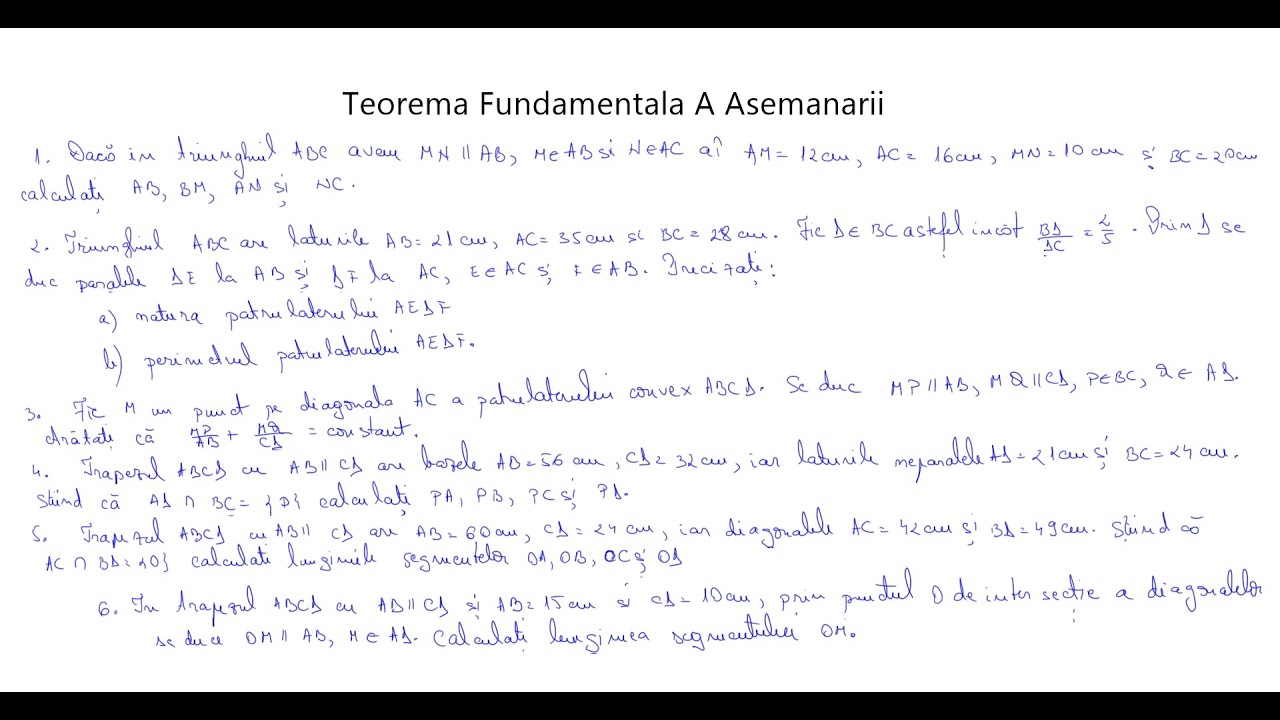 Teorema Fundamentala A Asemanarii
1. Dacă în triunghiul ABC avem MN || AB, M∈AB si N∈AC aî AM = 12cm, AC = 16cm, MN = 10 cm și BC = 20cm
calculați AB, BM, AN și NC.
2. Triunghiul ABC are laturile AB = 21 cm, AC = 35 cm si BC = 28 cm. Fie D ∈ BC astefel incât BD/DC = 2/5. Prin D se
duc paralele DE la AB și DF la AC, E∈AC și F∈AB. Precizați:
a) natura patrulaterului AEDF
b) perimetrul patrulaterului AEDF.
3. Fie M un punct pe diagonala AC a patrulaterului convex ABCD. Se duc MP || AB, MQ || CD, P∈BC, Q∈ AD.
Arătați că MP/AB + MQ/CD = constant.
4. Trapezul ABCD cu AB || CD are bazele AB = 56 cm, CD = 32 cm, iar laturile neparalele AD = 21 cm și BC = 24 cm.
Stiind că AD ∩ BC = {P} calculați PA, PB, PC și PD.
5. Trapezul ABCD cu AB || CD are AB = 60 cm, CD = 24 cm, iar diagonalele AC = 42 cm și BD = 49 cm. Știind că
AC ∩ BD = {O} calculati lungimile segmentelor OA, OB, OC și OD
6. În trapezul ABCD cu AB || CD și AB = 15 cm si CD = 10 cm, prin punctul O de intersectie a diagonalelor
se duce OM || AB, M ∈ AD. Calculați lungimea segmentului OM.